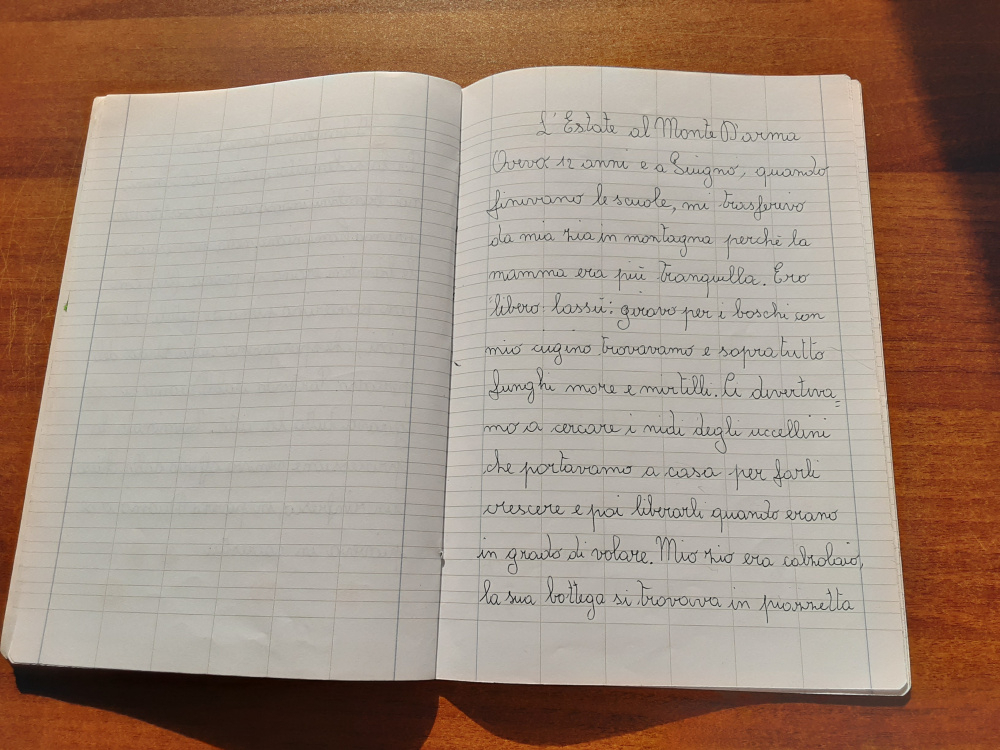 L'Estate al Monte D'arma
Avevo 12 anni e a Giugno, quando
finivano le scuole, mi trasferivo
da mia zia in montagna perchè la
mamma era più tranquilla. Ero
libero lassù: giravo per i boschi con
mio cugino trovavamo e sopratutto
funghi more e mirtilli. Ci divertiva=
mo a cercare i nidi degli uccellini
che portavamo a casa per farli
crescere e poi liberarli quando erano
in grado di volare. Mio zio era calzolaio,
la sua bottega si trovava in piazzetta